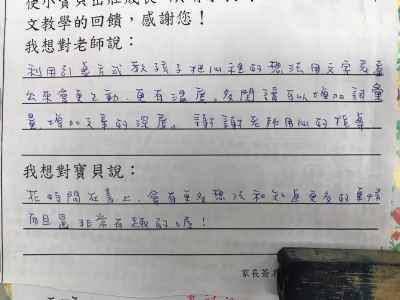 使小寶貝茁壯成長
文教學的回饋，感謝您！
我想對老師說：
利用引導方式教孩子把心裡的想法用文字表達
出來會更生動、更有溫度。多閱讀可以增加詞彙
量增加文章的深度。謝謝老師用心的指導
我想對寶貝說：
花時間在書上，會有更多想法和知道更多的事情
而且是非常有趣的唷！
家長簽名